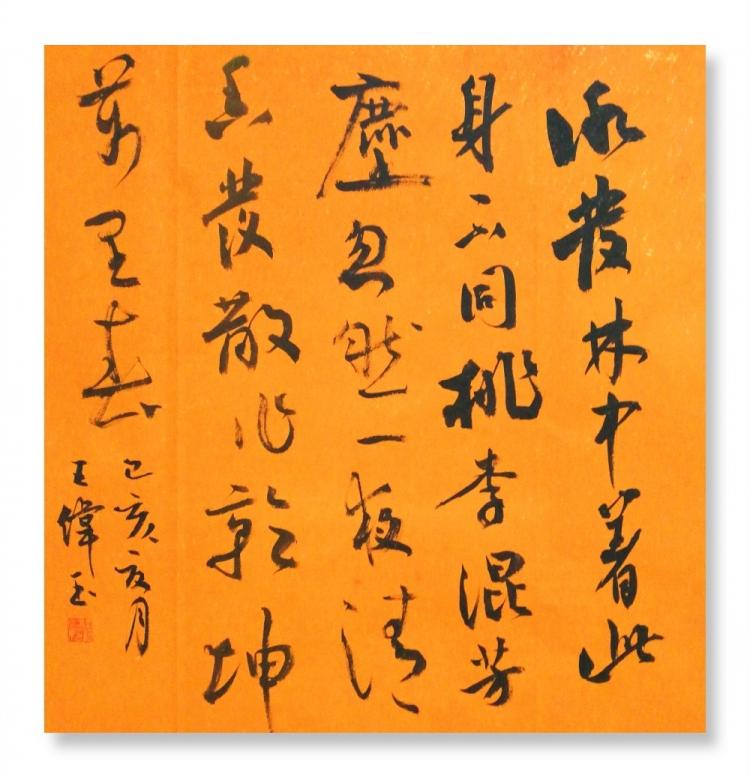 冰雪林中著此
身不同桃李混芳
塵忽然一夜清
香發散作乾坤
萬里春
己亥夏月
王偉玉